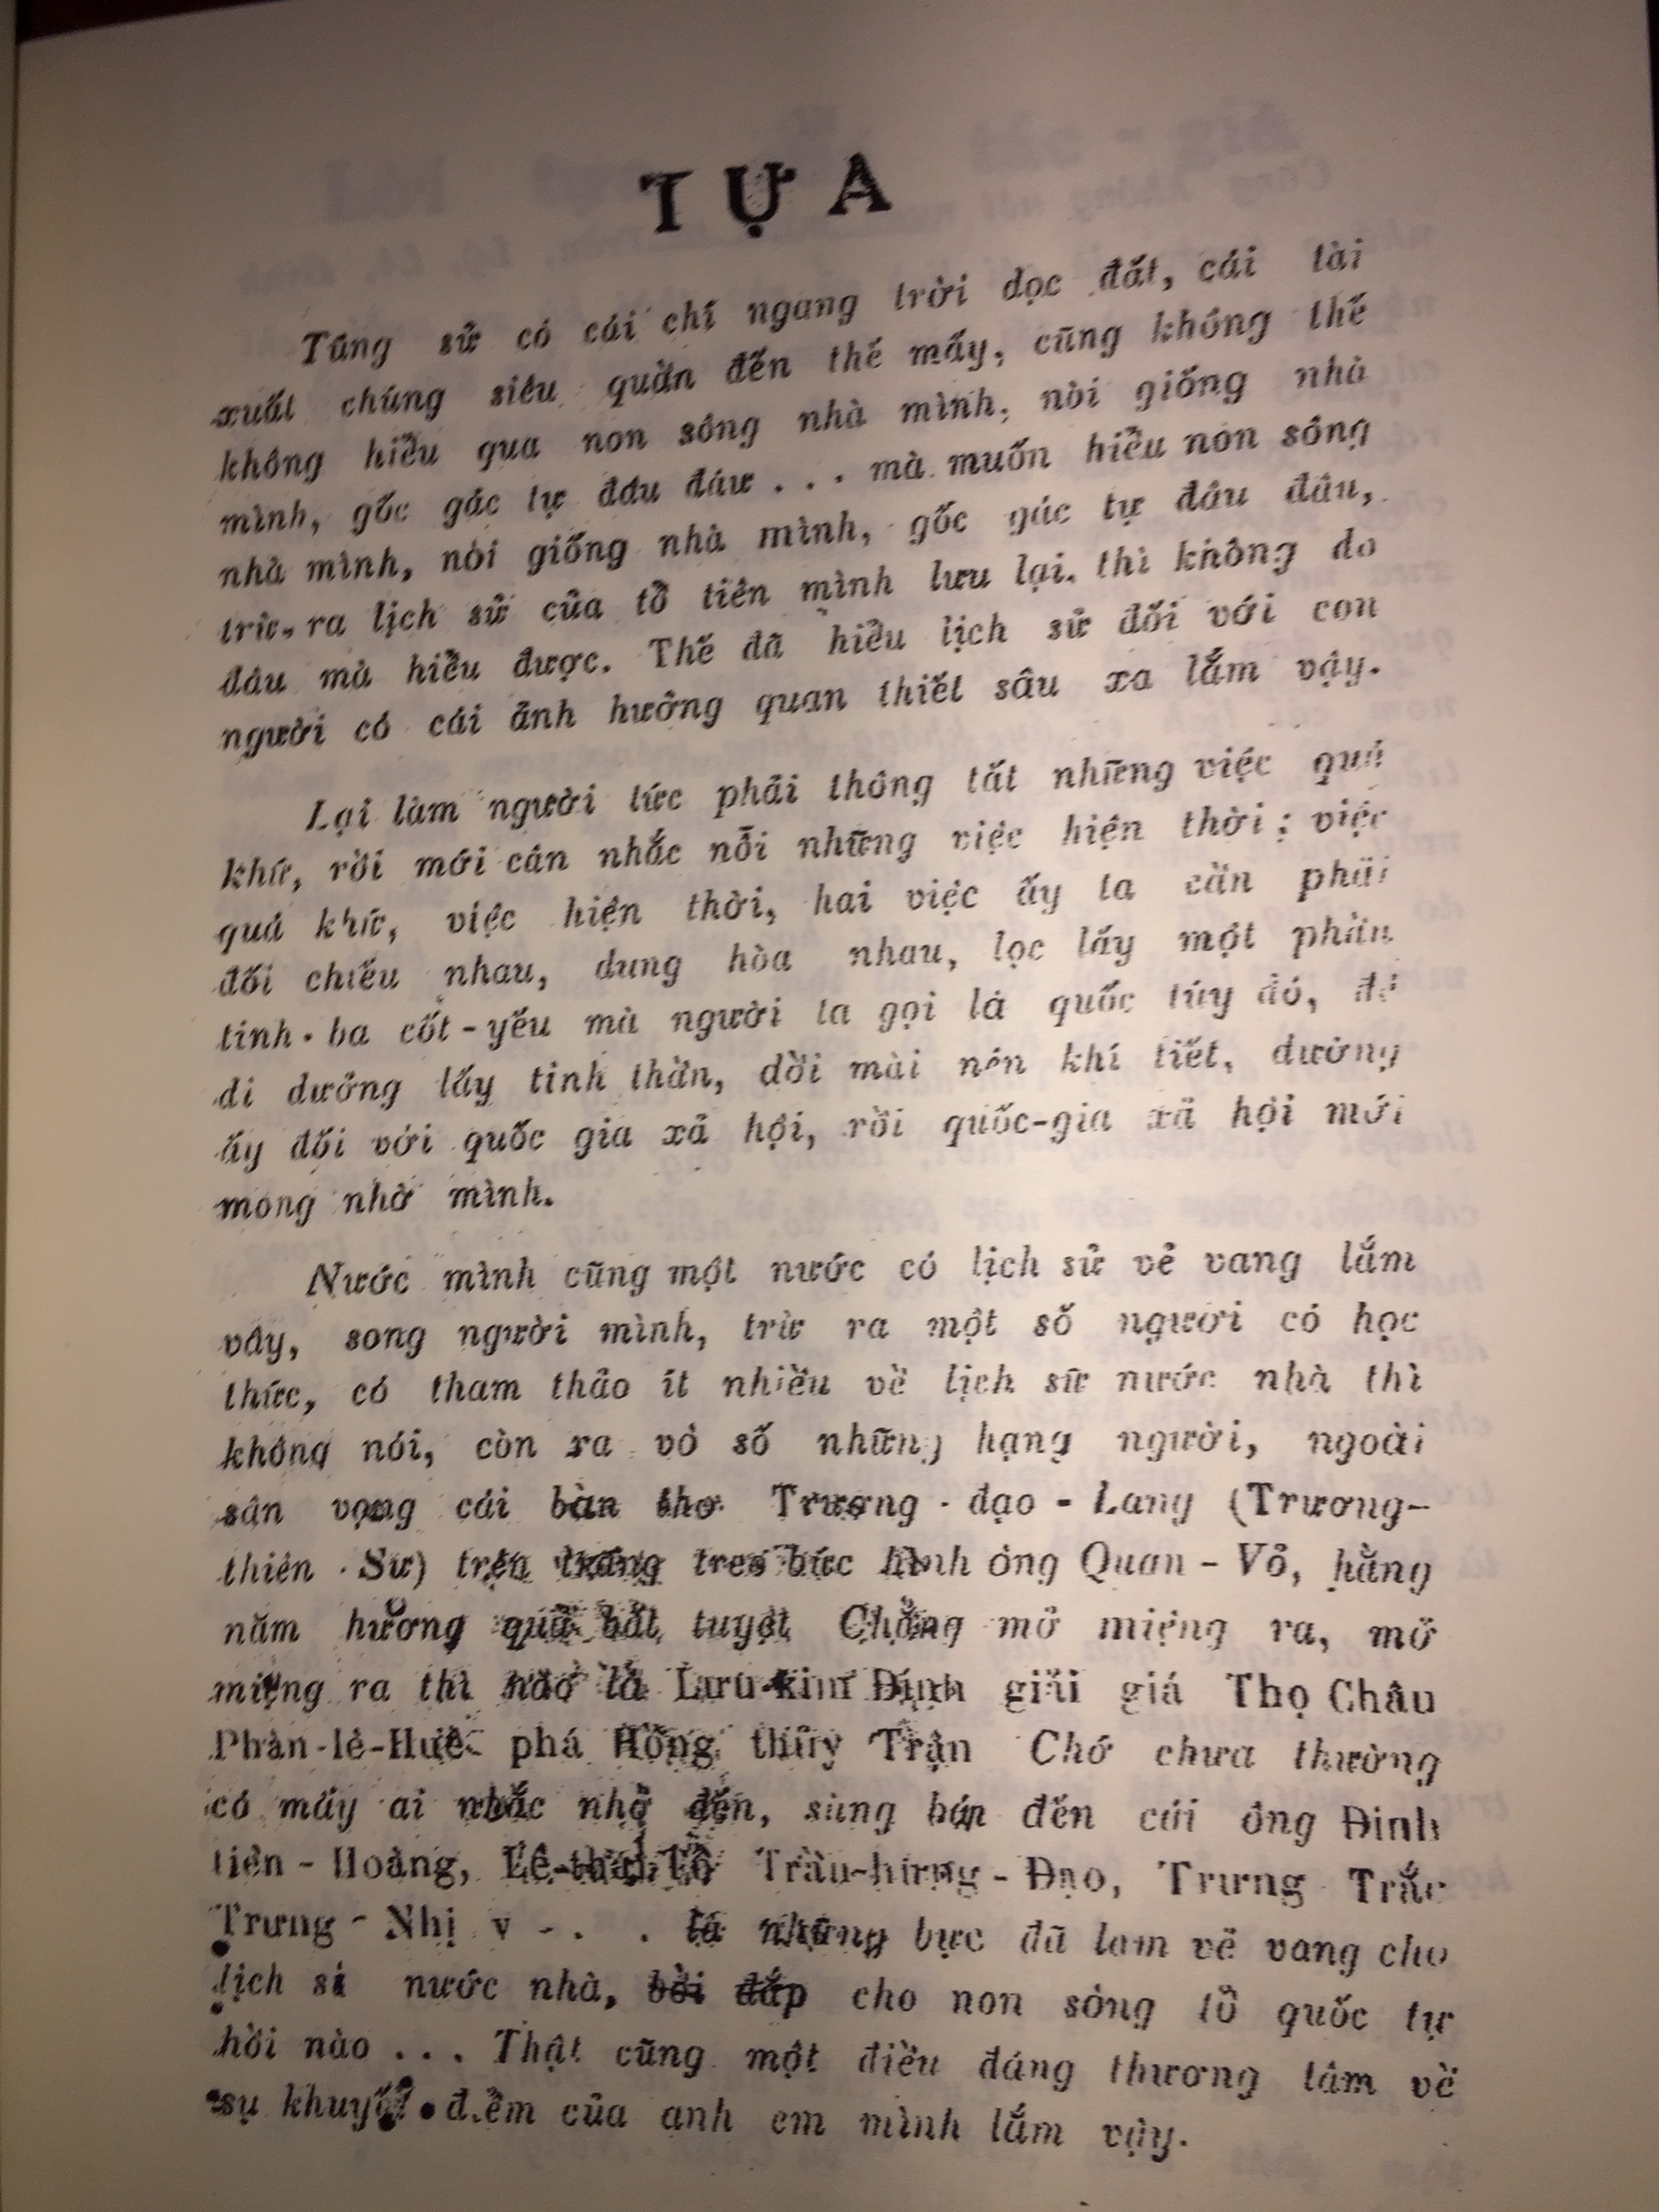 TỰA
Tâng sử có cái chí ngang trời dọc đất, cái tài
xuất chúng siêu quần đến thế mấy, cũng không thể
không hiểu qua non sông nhà mình, nòi giống nhà
mình, gốc gác tự đâu đâu . . . mà muốn hiểu non sông
nhà mình, nòi giống nhà mình, gốc gác tự đâu đâu,
trừ ra lịch sử của tổ tiên mình lưu lại, thì không do
đâu mà hiểu được. Thế đã hiểu lịch sử đối với con
người có cái ảnh hưởng quan thiết sâu xa lắm vậy.
Lại làm người tức phải thông tất những việc quá
khứ, rồi mới cân nhắc nổi những việc hiện thời; việc
quá khứ, việc hiện thời, hai việc ấy ta cần phải
đối chiếu nhau, dung hòa nhau, lọc lấy một phần
tinh-ba cốt-yếu mà người ta gọi là quốc túy đó, để
di dưởng lấy tinh thần, dồi mài nên khí tiết, dường
ấy đối với quốc gia xả hội, rồi quốc-gia xã hội mới
mong nhờ mình.
Nước mình cũng một nước có lịch sử vẻ vang lắm
vây, song người mình, trừ ra một số người có học
thức, có tham thảo ít nhiều về lịch sử nước nhà thì
không nói, còn ra vô số những hạng người, ngoài
sân vọng cái bàn thơ Trương-đạo-Lang (Trương-
thiên-Sư) trên treo bức hình ông Quan-Võ, hằng
năm hương quả bất tuyệt Chẳng mở miệng ra, mở
miệng ra thì nào là Lưu-kim Đính giải giá Thọ Châu
Phàn-lê-Huê phá Hồng thủy Trận Chớ chưa thường
có mấy ai nhắc nhở đến, sùng bán đến cái ông Đinh
tiên-Hoàng, Lê-thái-Tổ Trần-hưng-Đạo, Trưng Trắc
Trưng-Nhị v - . . là những bực đã làm vẽ vang cho
lịch sử nước nhà, bồi đắp cho non sông tổ quốc tự
hồi nào . . . Thật cũng một điều đáng thương tâm về
sụ khuyết điểm của anh em mình lắm vậy.